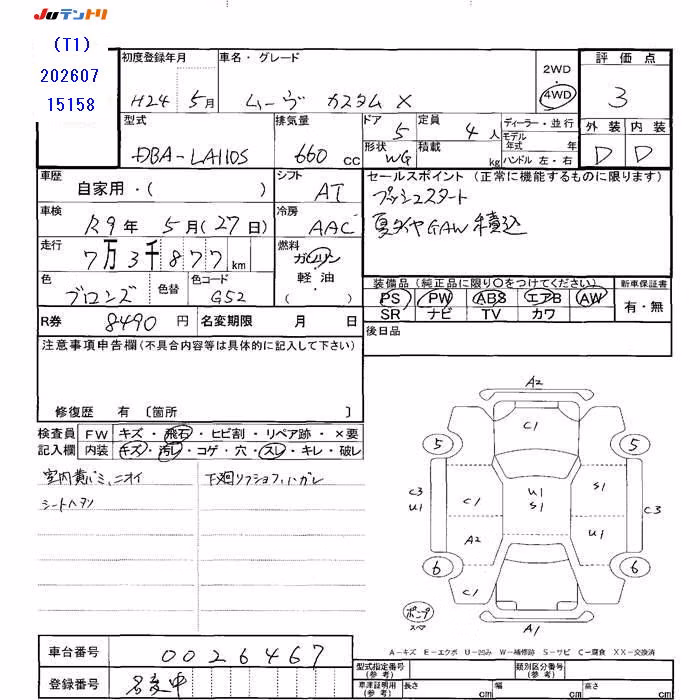 JUテントリ
(T1)
202607
15158
初度登録年月
H24 5月
車名・グレード
ムーヴ カスタム X
2WD
4WD
評価点
3
外装 内装
D D
型式
DBA-LA110S
排気量
660 cc
ドア
5
定員
4 人
ディーラー・並行
モデル
年式 年
形状
WG
積載
kg
ハンドル 左・右
車歴
自家用・( )
シフト
AT
車検
R9年 5月(27日)
冷房
AAC
走行
7万3千877km
燃料
ガソリン
軽油
( )
色
ブロンズ
色替
色コード
G52
R券
8490 円
名変期限 月 日
セールスポイント (正常に機能するものに限ります)
プッシュスタート
夏タイヤGAW積込
装備品(純正品に限り○をつけてください)
新車保証書
PS PW ABS エアB AW
SR ナビ TV カワ
有・無
後日品
注意事項申告欄(不具合内容等は具体的に記入して下さい)
修復歴 有 〔箇所 〕
検査員
記入欄
FW キズ・飛石・ヒビ割・リペア跡・×要
内装 キズ・汚レ・コゲ・穴・スレ・キレ・破レ
室内黄バミ、ニオイ
シートヘタリ
下廻りフショク、ハガレ
A2
C1
5 5
C3
U1
C1
U1
S1
S1
C3
A2
U1
6 6
C1
ポンプ
スペア
A1
A-キズ E-エクボ U-凹み W-補修跡 S-サビ C-腐食 XX-交換済
車台番号
0026467
登録番号
名変中
型式指定番号
(参考)
類別区分番号
(参考)
車庫証明用
(参考)
長さ cm
幅 cm
高さ cm